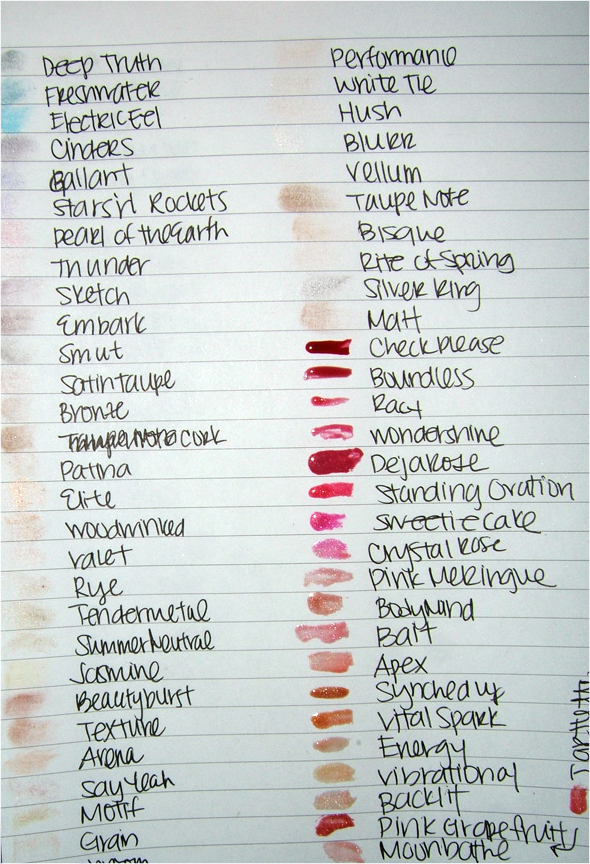 Deep Truth
Freshwater
Electric Eel
Cinders
Gallant
Stars n' Rockets
Pearl of the Earth
Thunder
Sketch
Embark
Smut
Satin Taupe
Bronze
Cork
Patina
Elite
Woodwinked
Valet
Rye
Tendermetal
Summer Neutral
Jasmine
Beautyburst
Texture
Arena
Say Yeah
Motif
Grain
Performance
White Tie
Hush
Blurr
Vellum
Taupe Note
Bisque
Rite of Spring
Silver Ring
Matt
Check Please
Boundless
Racy
Wondershine
Deja Rose
Standing Ovation
Sweetie Cake
Crystal Rose
Pink Meringue
Body Mind
Bait
Apex
Synched Up
Vital Spark
Energy
Vibrational
Backlit
Pink Grapefruit
Moonbathe